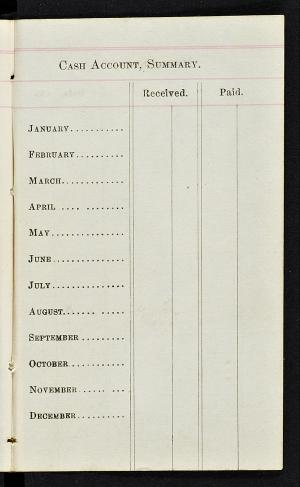 CASH ACCOUNT, SUMMARY.
Received. Paid.
JANUARY...........
FEBRUARY..........
MARCH.............
APRIL .... ........
MAY...............
JUNE...............
JULY...............
AUGUST....... .....
SEPTEMBER .........
OCTOBER ...........
NOVEMBER...... ...
DECEMBER..........